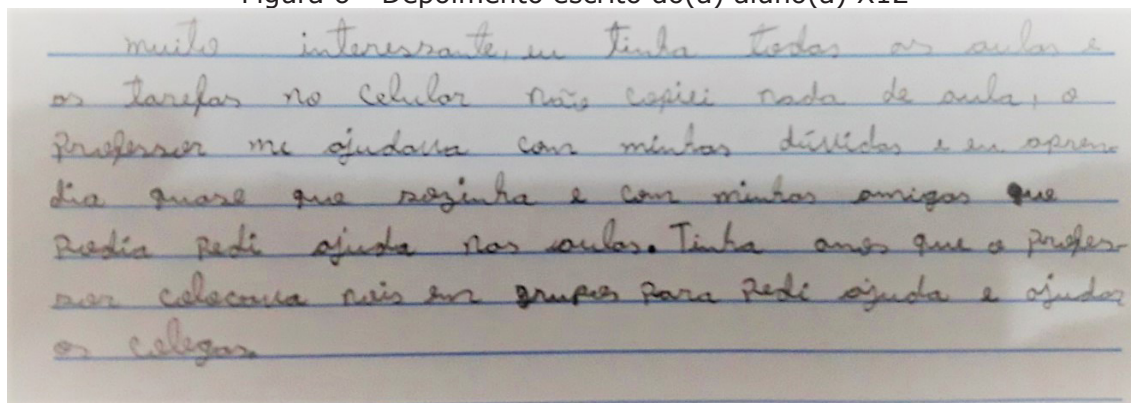 Figura 6 - Depoimento escrito do(a) aluno(a) X12
muito interessante, eu tinha todas as aulas e
as tarefas no celular não copiei nada de aula, o
professor me ajudava com minhas dúvidas e eu apren
dia quase que sozinha e com minhas amigas que
podia pedi ajuda nas aulas. Tinha anos que o profes-
sor colocava nois em grupos para pedi ajuda e ajudar
os colegas.